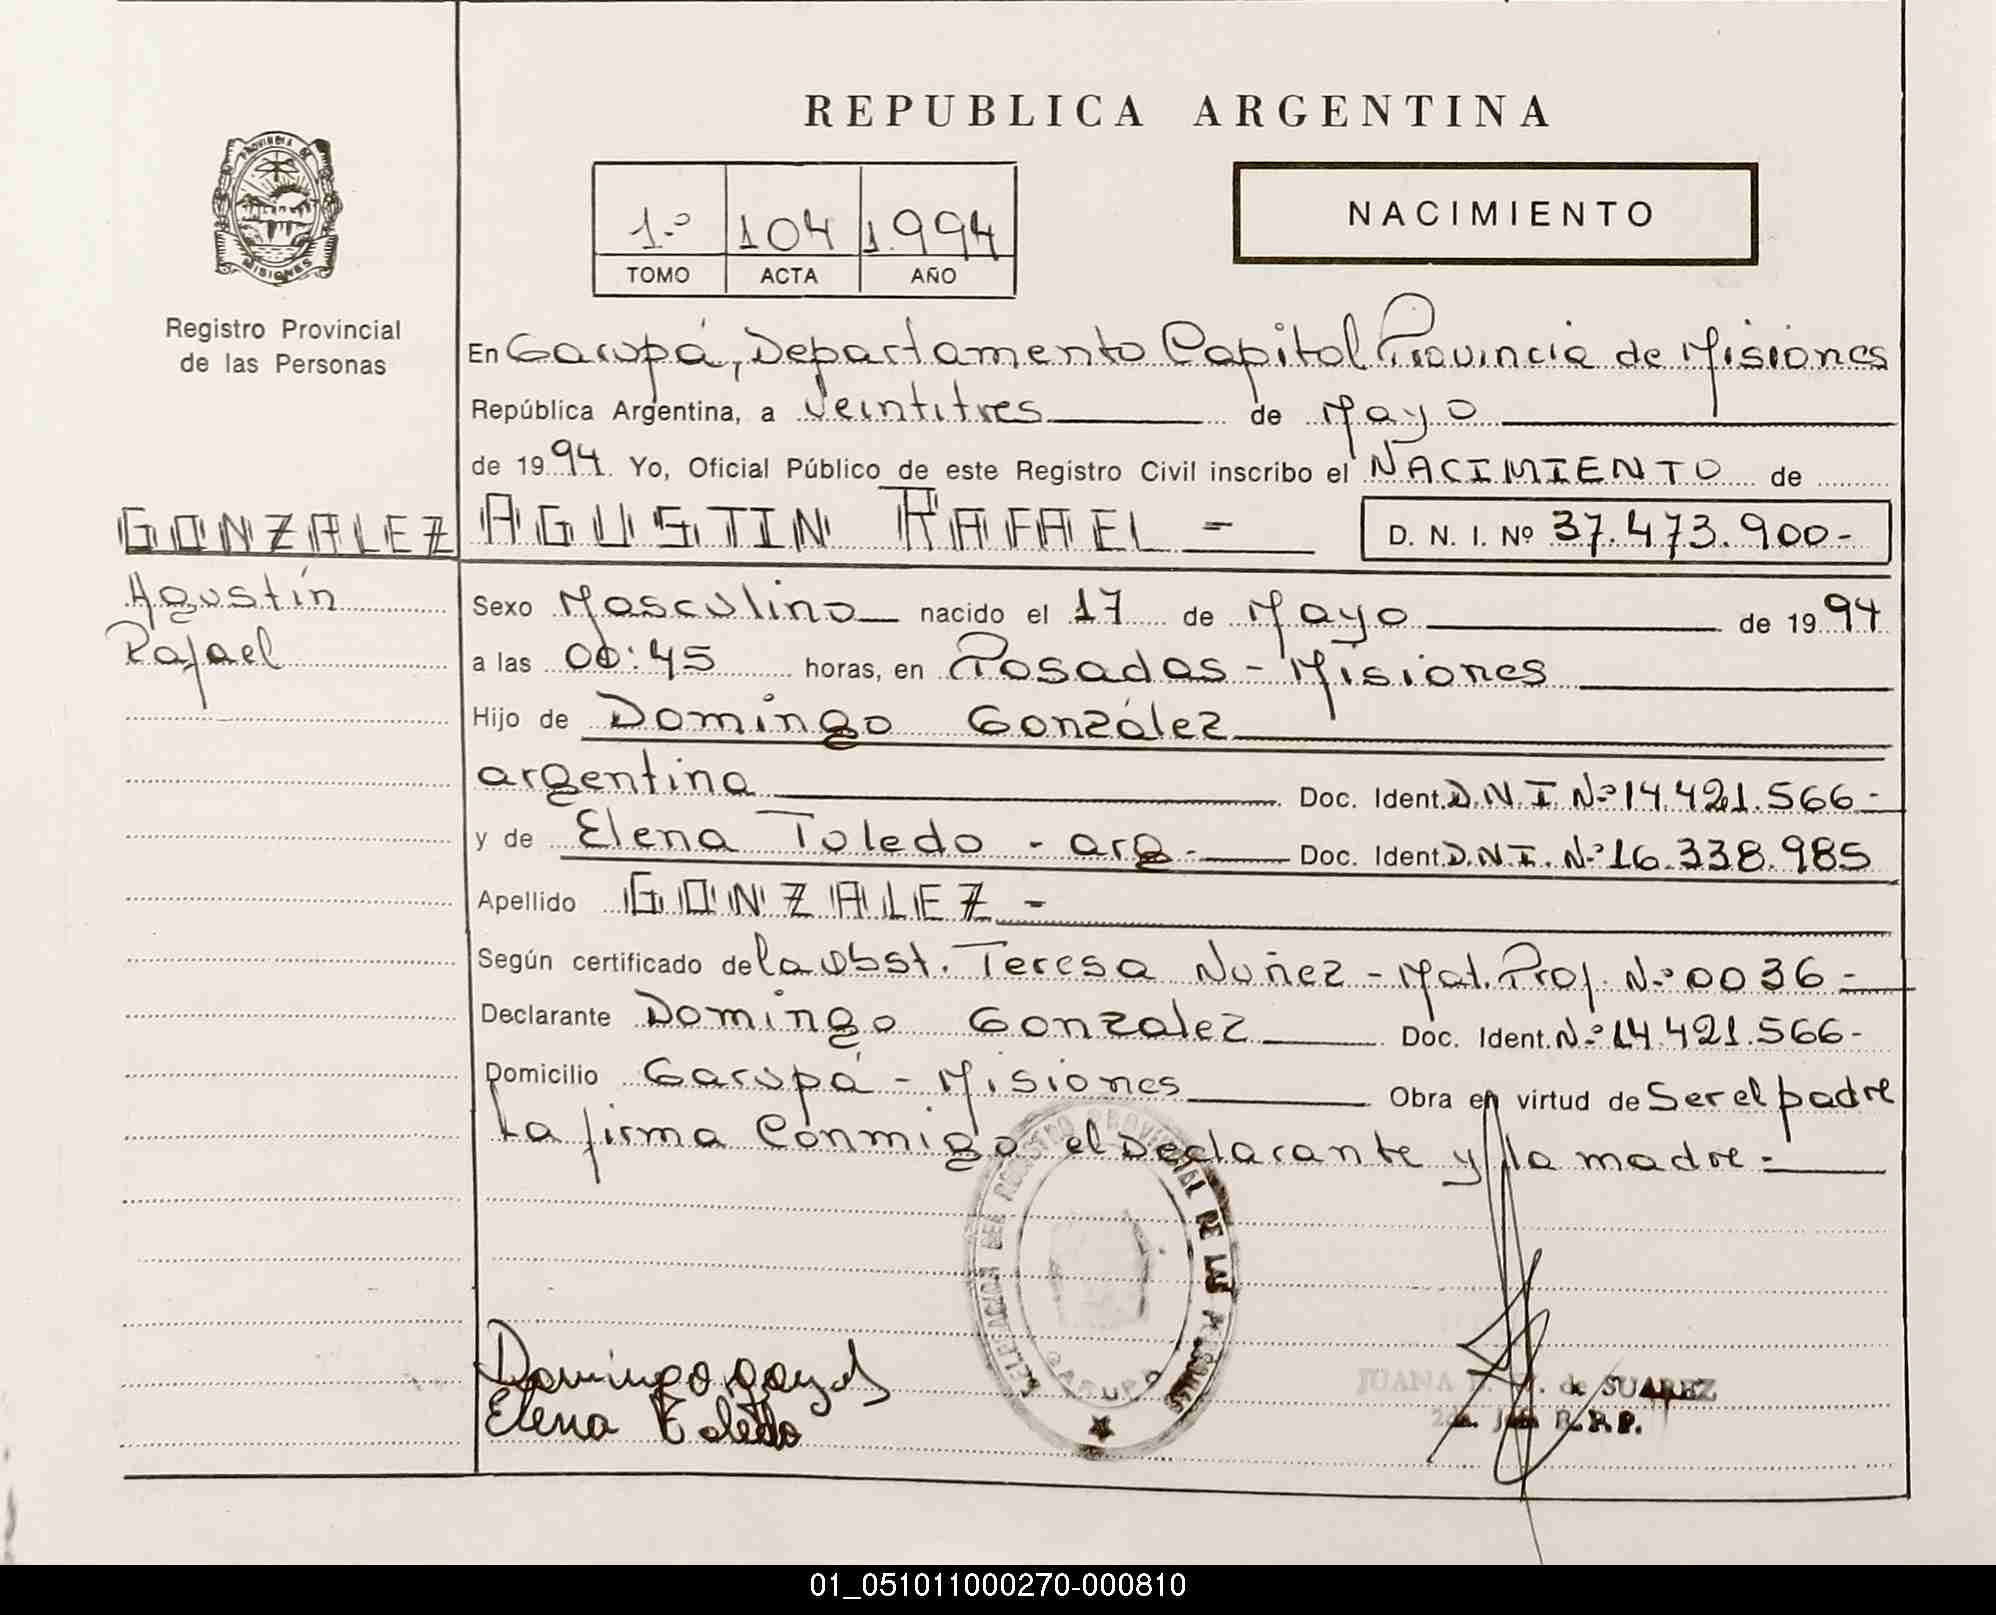 REPUBLICA ARGENTINA
PROVINCIA DE
MISIONES
Registro Provincial
de las Personas
1.º 104 1994
TOMO ACTA AÑO
NACIMIENTO
En Garupá, Departamento Capital Provincia de Misiones
República Argentina, a Veintitres de Mayo
de 1994. Yo, Oficial Público de este Registro Civil inscribo el NACIMIENTO de
GONZALEZ AGUSTIN RAFAEL - D. N. I. Nº 37.473.900-
Agustín
Rafael
Sexo Masculino nacido el 17 de Mayo de 1994
a las 00:45 horas, en Posadas - Misiones
Hijo de Domingo González
argentina Doc. Ident. D.N.I Nº 14.421.566-
y de Elena Toledo - arg - Doc. Ident. D.N.I. Nº 16.338.985
Apellido GONZALEZ -
Según certificado de la obst. Teresa Nuñez - Mat. Prof. Nº 0036 -
Declarante Domingo Gonzalez Doc. Ident. Nº 14.421.566-
Domicilio Garupá - Misiones Obra en virtud de Ser el padre
La firma Conmigo el Declarante y la madre -
DELEGACION DEL REGISTRO PROVINCIAL DE LAS PERSONAS
GARUPA
Domingo
Elena Toledo
JUANA de SUAREZ
R.P.P.
01_051011000270-000810